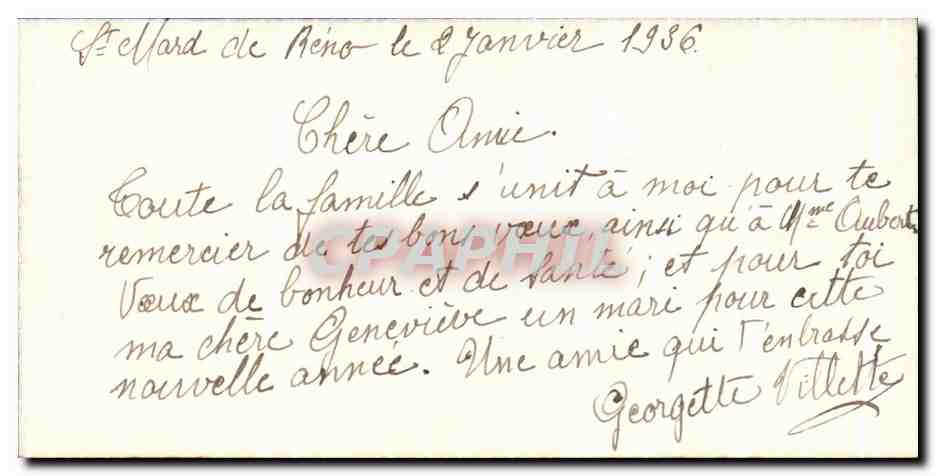 St Mard de Réno le 2 Janvier 1936.
Chère Amie.
Toute la famille s'unit à moi pour te
remercier de tes bons vœux, ainsi qu'à Mme Aubert
Vœux de bonheur et de Santé ; et pour toi
ma chère Geneviève un mari pour cette
nouvelle année. Une amie qui t'enbrasse
Georgette Villette
CPAPHIL